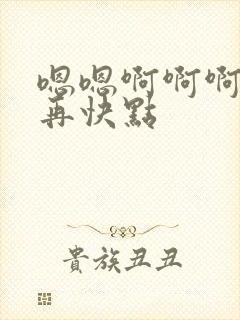 嗯嗯啊啊啊
再快點
貴族丑丑